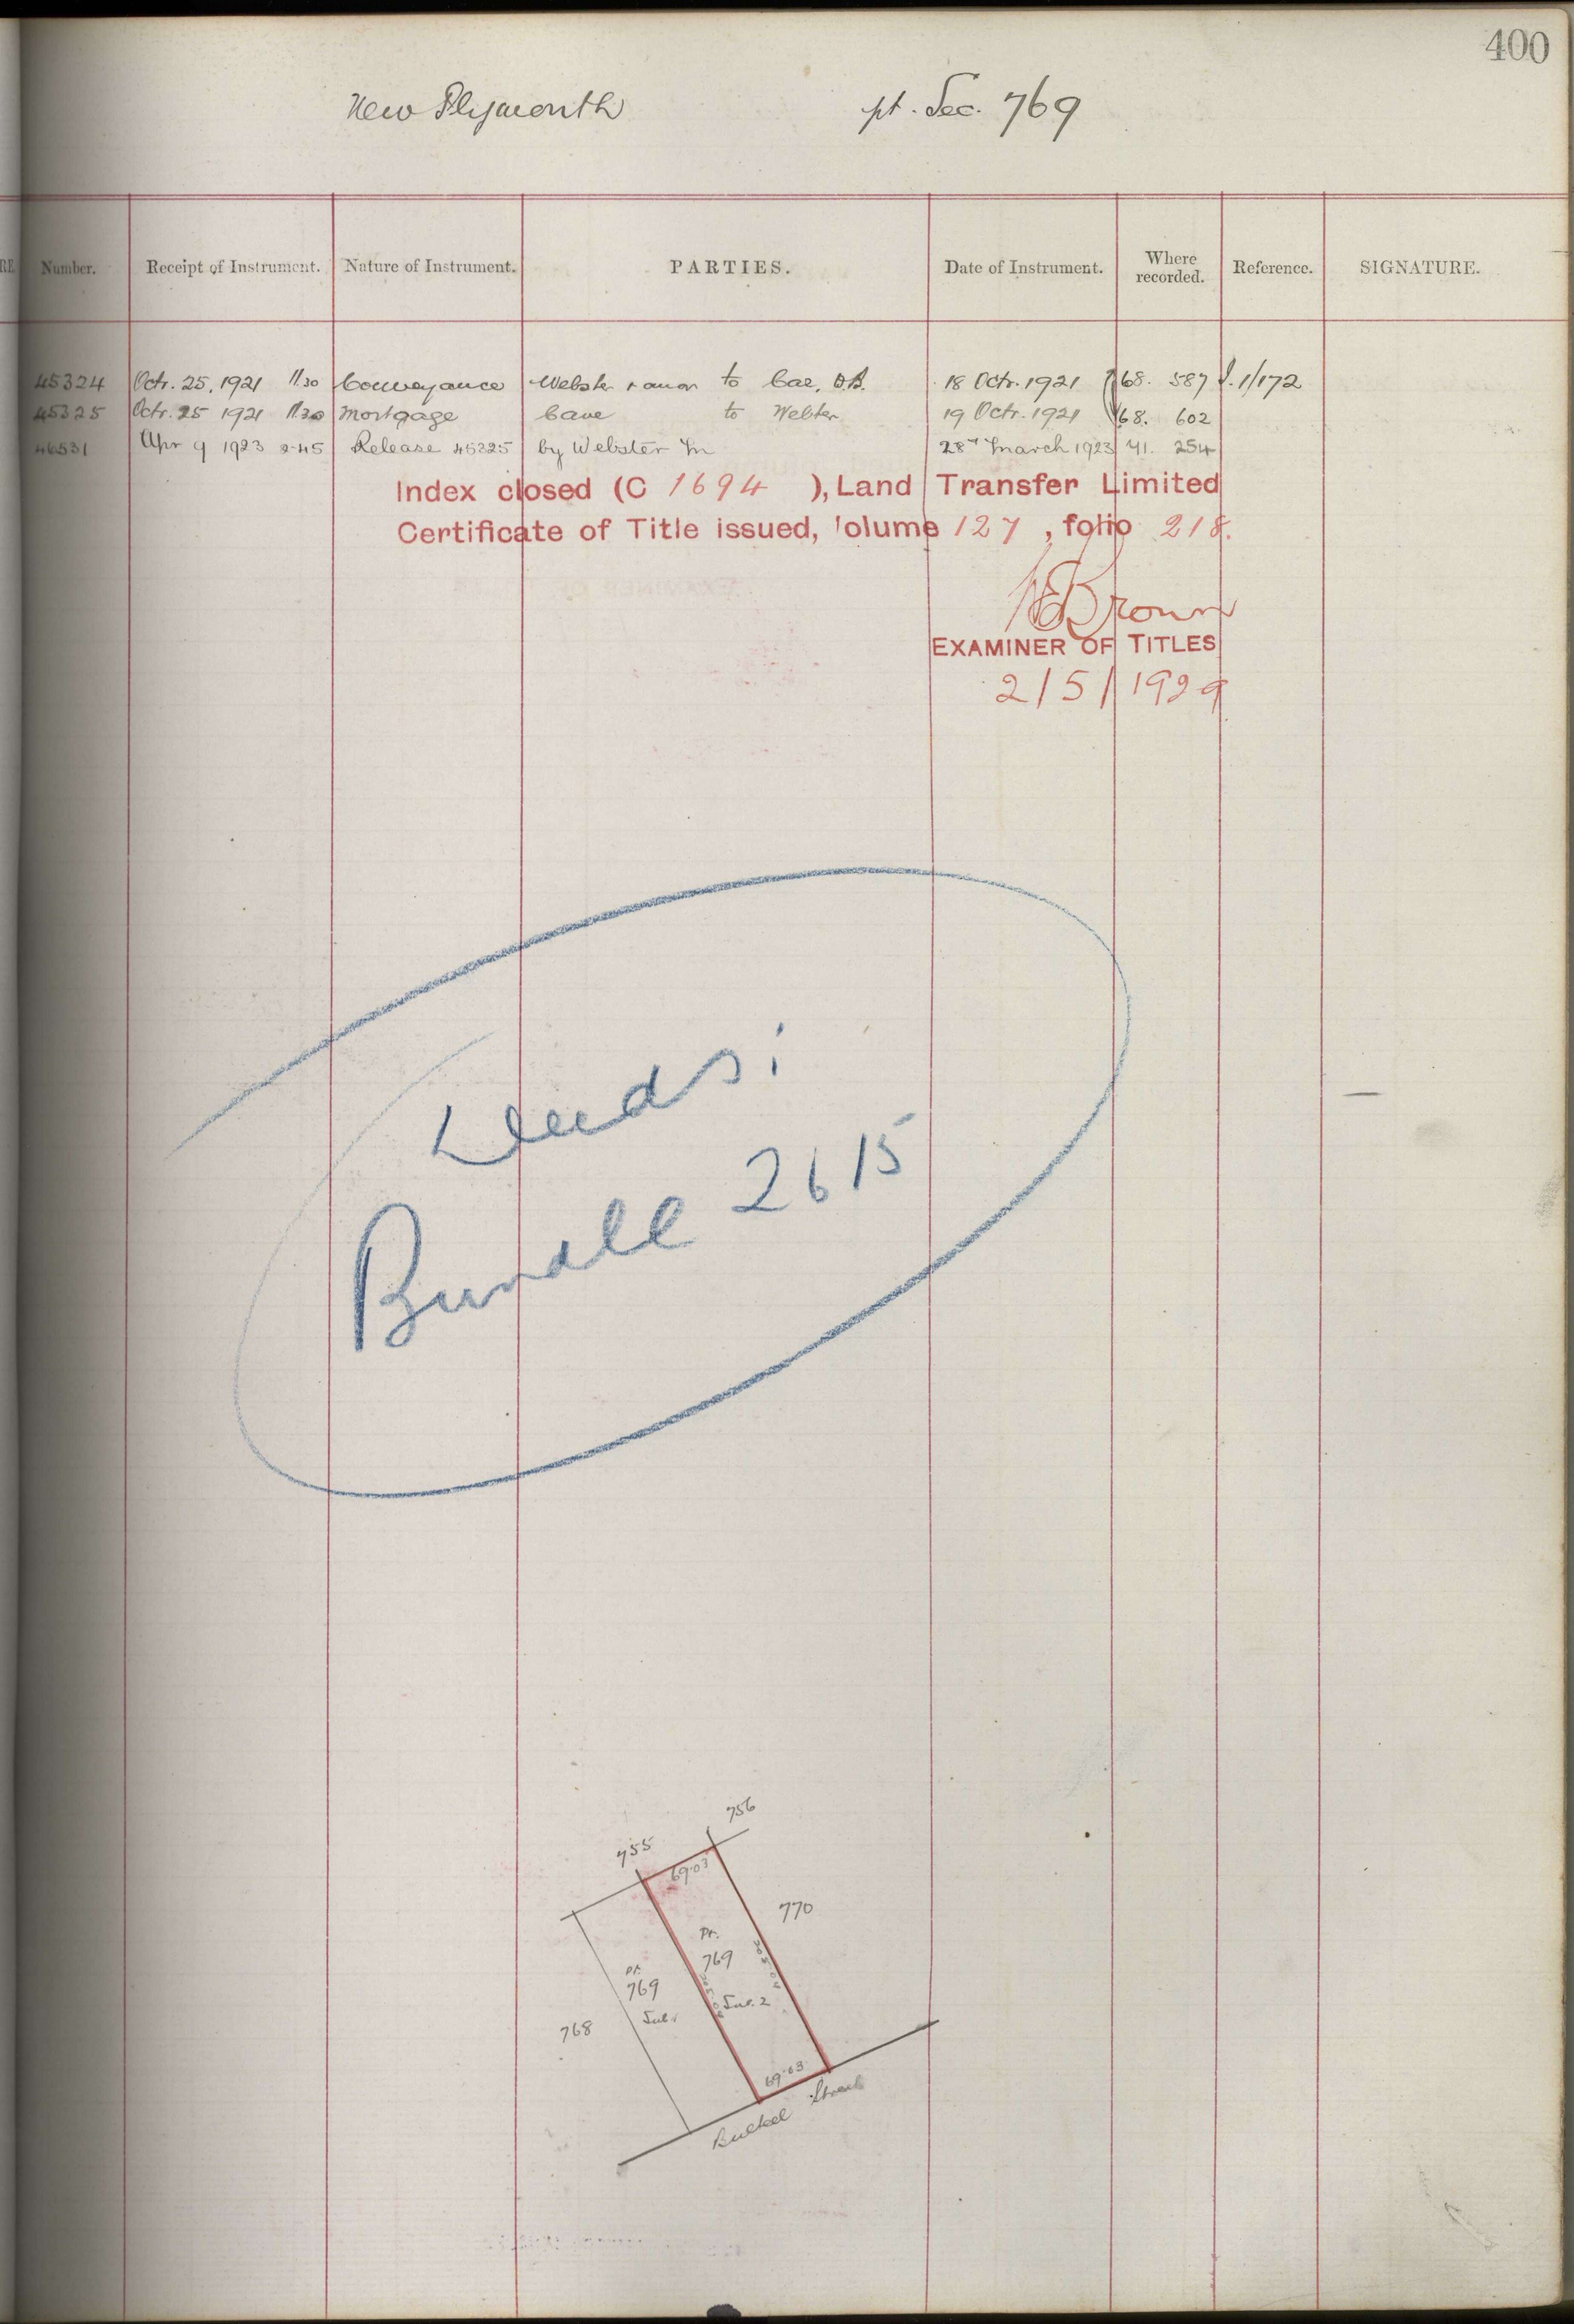 400
New Plymouth pt. Sec. 769
RE Number. Receipt of Instrument. Nature of Instrument. PARTIES. Date of Instrument. Where recorded. Reference. SIGNATURE.
45324 Octr. 25, 1921 11.30 Conveyance Webster & anor to 18 Octr. 1921 68. 587 1/172
45325 Octr. 25 1921 11.30 Mortgage to Webster 19 Octr. 1921 68. 602
46531 Apr 9 1923 2.45 Release 45325 by Webster 28th March 1923 71. 254
Index closed (C 1694 ), Land Transfer Limited
Certificate of Title issued, Volume 127, folio 218.
Brown
EXAMINER OF TITLES
2/5/1929
Deeds:
Bundle 2615
756
755
69.03
770
Pt.
769
Sub. 2
pt.
769
Sub. 1
768
69.03
Street